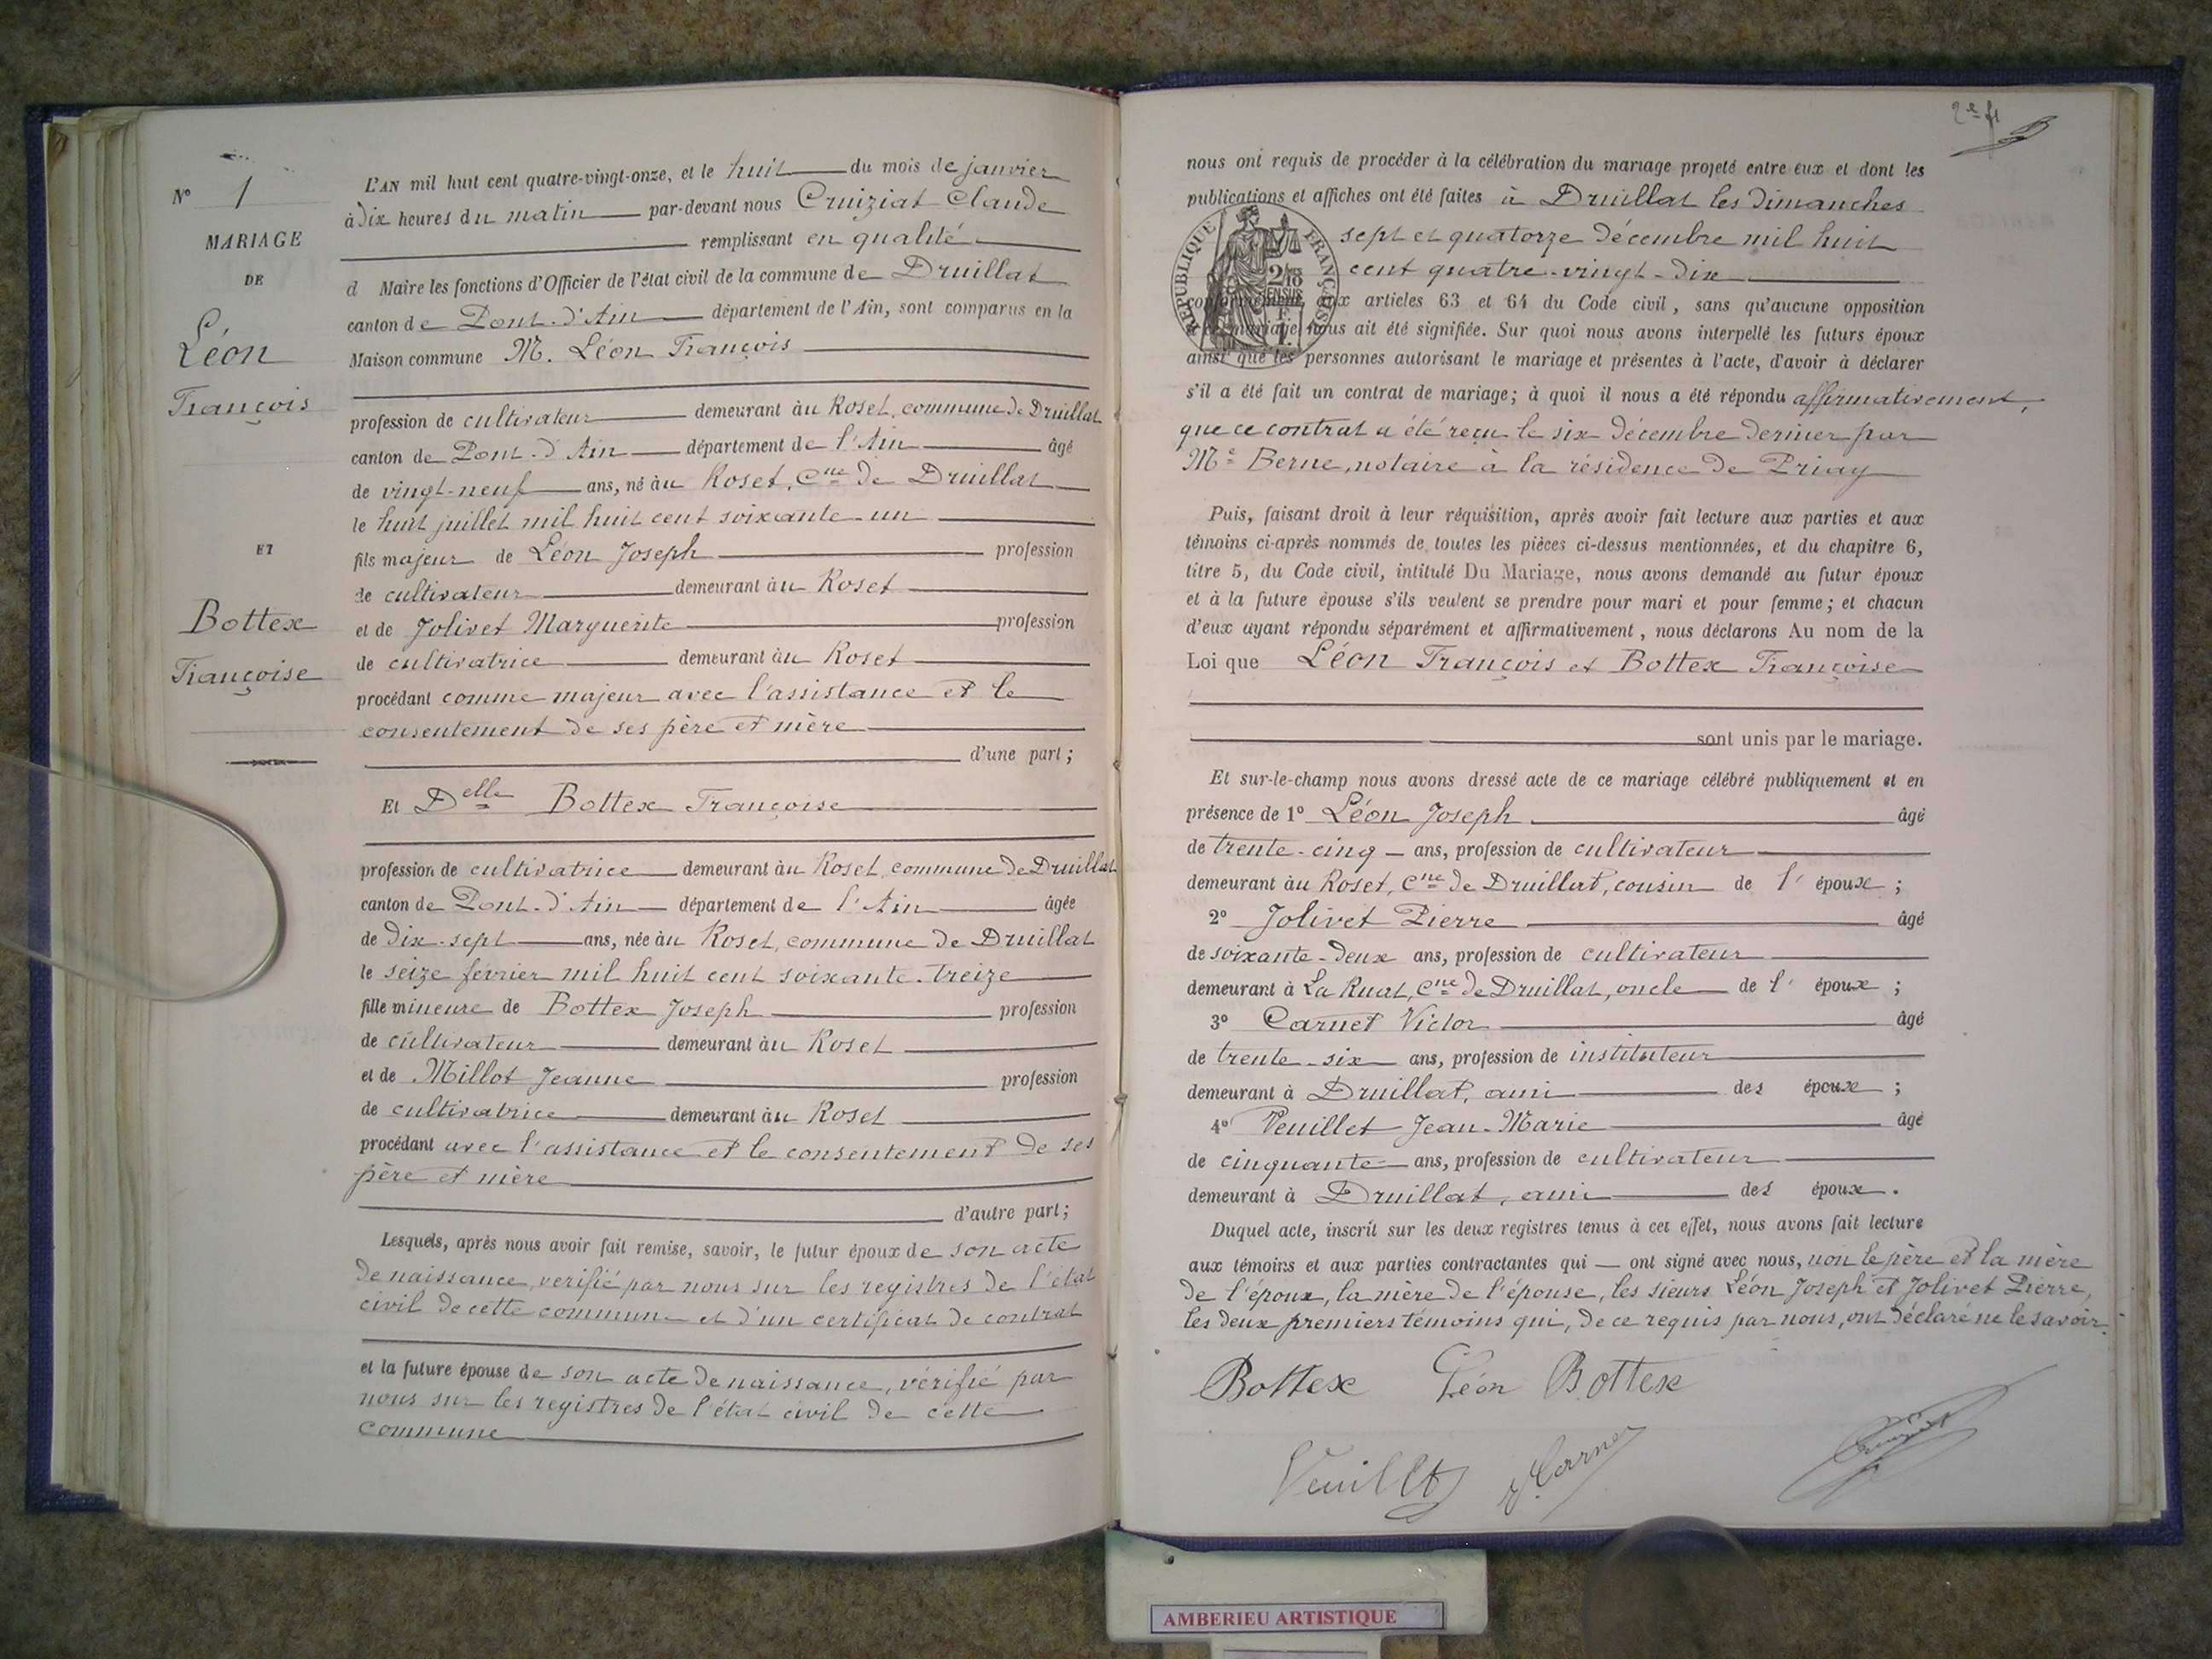 N° 1
MARIAGE
DE
Léon
François
ET
Bottex
Françoise
L'AN mil huit cent quatre-vingt-onze, et le huit du mois de janvier
à dix heures du matin par-devant nous Cruiziat Claude
remplissant en qualité
d Maire les fonctions d'Officier de l'état civil de la commune de Druillat
canton de Pont-d'Ain département de l'Ain, sont comparus en la
Maison commune M. Léon François
profession de cultivateur demeurant au Roset, commune de Druillat
canton de Pont-d'Ain département de l'Ain âgé
de vingt-neuf ans, né au Roset, Cne de Druillat
le huit juillet mil huit cent soixante-un
fils majeur de Léon Joseph profession
de cultivateur demeurant au Roset
et de Jolivet Marguerite profession
de cultivatrice demeurant au Roset
procédant comme majeur avec l'assistance et le
consentement de ses père et mère
d'une part;
Et Delle Bottex Françoise
profession de cultivatrice demeurant au Roset, commune de Druillat
canton de Pont-d'Ain département de l'Ain âgée
de dix-sept ans, née au Roset, commune de Druillat
le seize février mil huit cent soixante-treize
fille mineure de Bottex Joseph profession
de cultivateur demeurant au Roset
et de Millot Jeanne profession
de cultivatrice demeurant au Roset
procédant avec l'assistance et le consentement de ses
père et mère
d'autre part;
Lesquels, après nous avoir fait remise, savoir, le futur époux de son acte
de naissance, verifié par nous sur les registres de l'état
civil de cette commune et d'un certificat de contrat
et la future épouse de son acte de naissance, vérifié par
nous sur les registres de l'état civil de cette
commune
2e ft
nous ont requis de procéder à la célébration du mariage projeté entre eux et dont les
publications et affiches ont été faites à Druillat les dimanches
sept et quatorze décembre mil huit
cent quatre-vingt-dix
RÉPUBLIQUE FRANÇAISE
conformément aux articles 63 et 64 du Code civil, sans qu'aucune opposition
mariage nous ait été signifiée. Sur quoi nous avons interpellé les futurs époux
ainsi que les personnes autorisant le mariage et présentes à l'acte, d'avoir à déclarer
s'il a été fait un contrat de mariage; à quoi il nous a été répondu affirmativement,
que ce contrat a été reçu le six décembre dernier par
Me Berne, notaire à la résidence de Priay
Puis, faisant droit à leur réquisition, après avoir fait lecture aux parties et aux
témoins ci-après nommés de toutes les pièces ci-dessus mentionnées, et du chapitre 6,
titre 5, du Code civil, intitulé Du Mariage, nous avons demandé au futur époux
et à la future épouse s'ils veulent se prendre pour mari et pour femme; et chacun
d'eux ayant répondu séparément et affirmativement, nous déclarons Au nom de la
Loi que Léon François et Bottex Françoise
sont unis par le mariage.
Et sur-le-champ nous avons dressé acte de ce mariage célébré publiquement et en
présence de 1° Léon Joseph âgé
de trente-cinq ans, profession de cultivateur
demeurant au Roset, Cne de Druillat, cousin de l'époux;
2° Jolivet Pierre âgé
de soixante-deux ans, profession de cultivateur
demeurant à La Ruat, Cne de Druillat, oncle de l'époux;
3° Carnet Victor âgé
de trente-six ans, profession de instituteur
demeurant à Druillat, ami des époux;
4° Veuillet Jean-Marie âgé
de cinquante ans, profession de cultivateur
demeurant à Druillat, ami des époux.
Duquel acte, inscrit sur les deux registres tenus à cet effet, nous avons fait lecture
aux témoins et aux parties contractantes qui — ont signé avec nous, non le père et la mère
de l'époux, la mère de l'épouse, les sieurs Léon Joseph et Jolivet Pierre,
les deux premiers témoins qui, de ce requis par nous, ont déclaré ne le savoir.
Bottex Léon Bottex
Veuillet V. Carnet Cruiziat
AMBERIEU ARTISTIQUE